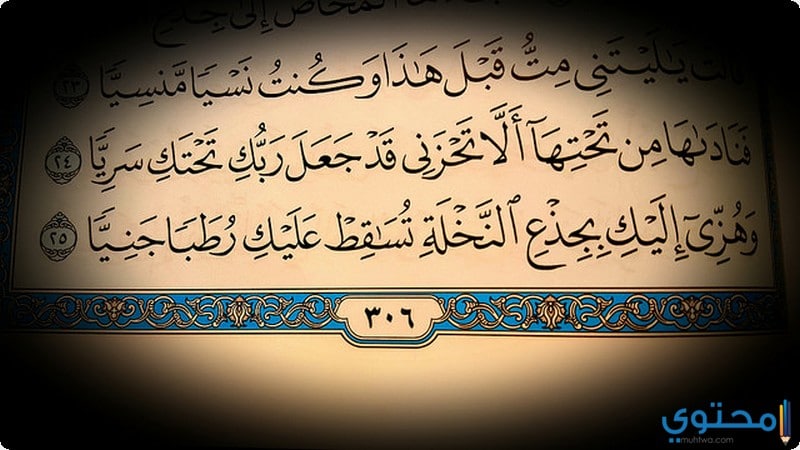 ٱلْمَخَاضُ إِلَىٰ جِذْعِ
قَالَتْ يَٰلَيْتَنِى مِتُّ قَبْلَ هَٰذَا وَكُنتُ نَسْيًا مَّنسِيًّا ٢٣
فَنَادَىٰهَا مِن تَحْتِهَآ أَلَّا تَحْزَنِى قَدْ جَعَلَ رَبُّكِ تَحْتَكِ سَرِيًّا ٢٤
وَهُزِّىٓ إِلَيْكِ بِجِذْعِ ٱلنَّخْلَةِ تُسَٰقِطْ عَلَيْكِ رُطَبًا جَنِيًّا ٢٥
٣٠٦
محتوي
muhtwa.com